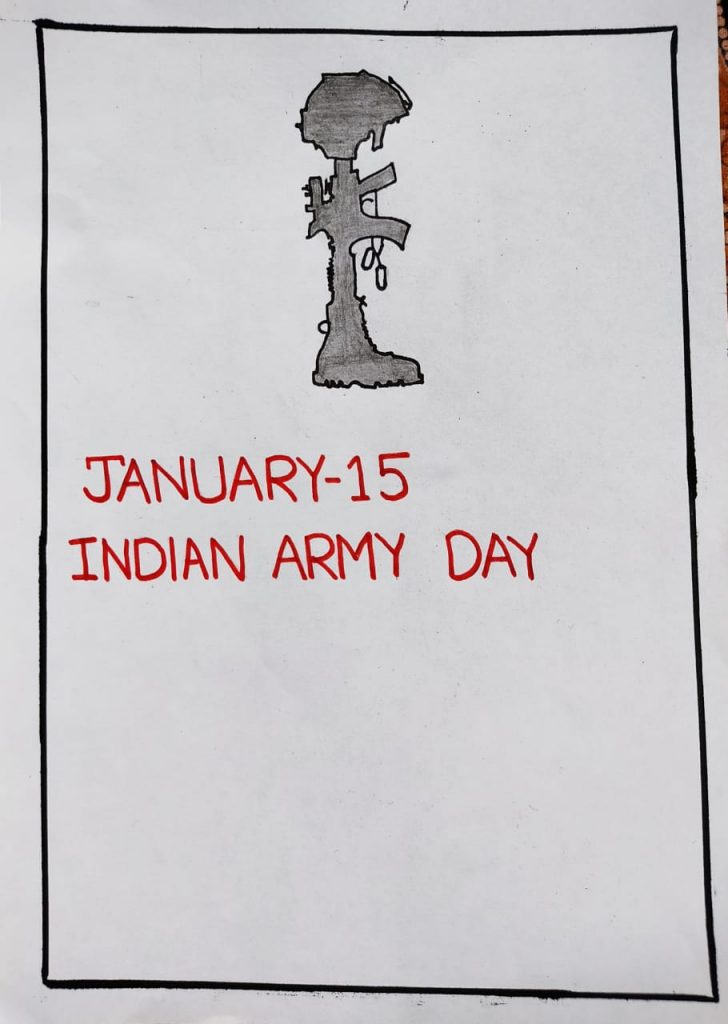 JANUARY-15
INDIAN ARMY DAY